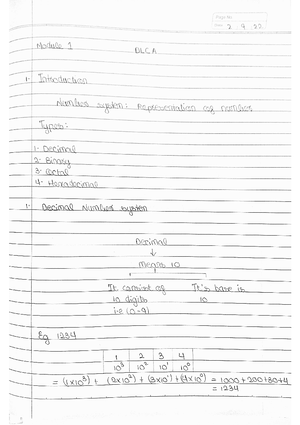 Page No.
2 9 22
Module 1 DLCA
1. Introduction
Number system: Representation of number
Types:
1. Decimal
2. Binary
3. Octal
4. Hexadecimal
1. Decimal Number System
Decimal
↓
means 10
It consist of It's base is
10 digits 10
i.e (0-9)
Eg 1234
1 2 3 4
10³ 10² 10¹ 10⁰
= (1x10³) + (2x10²) + (3x10¹) + (4x10⁰) = 1000 + 200 + 30 + 4
= 1234